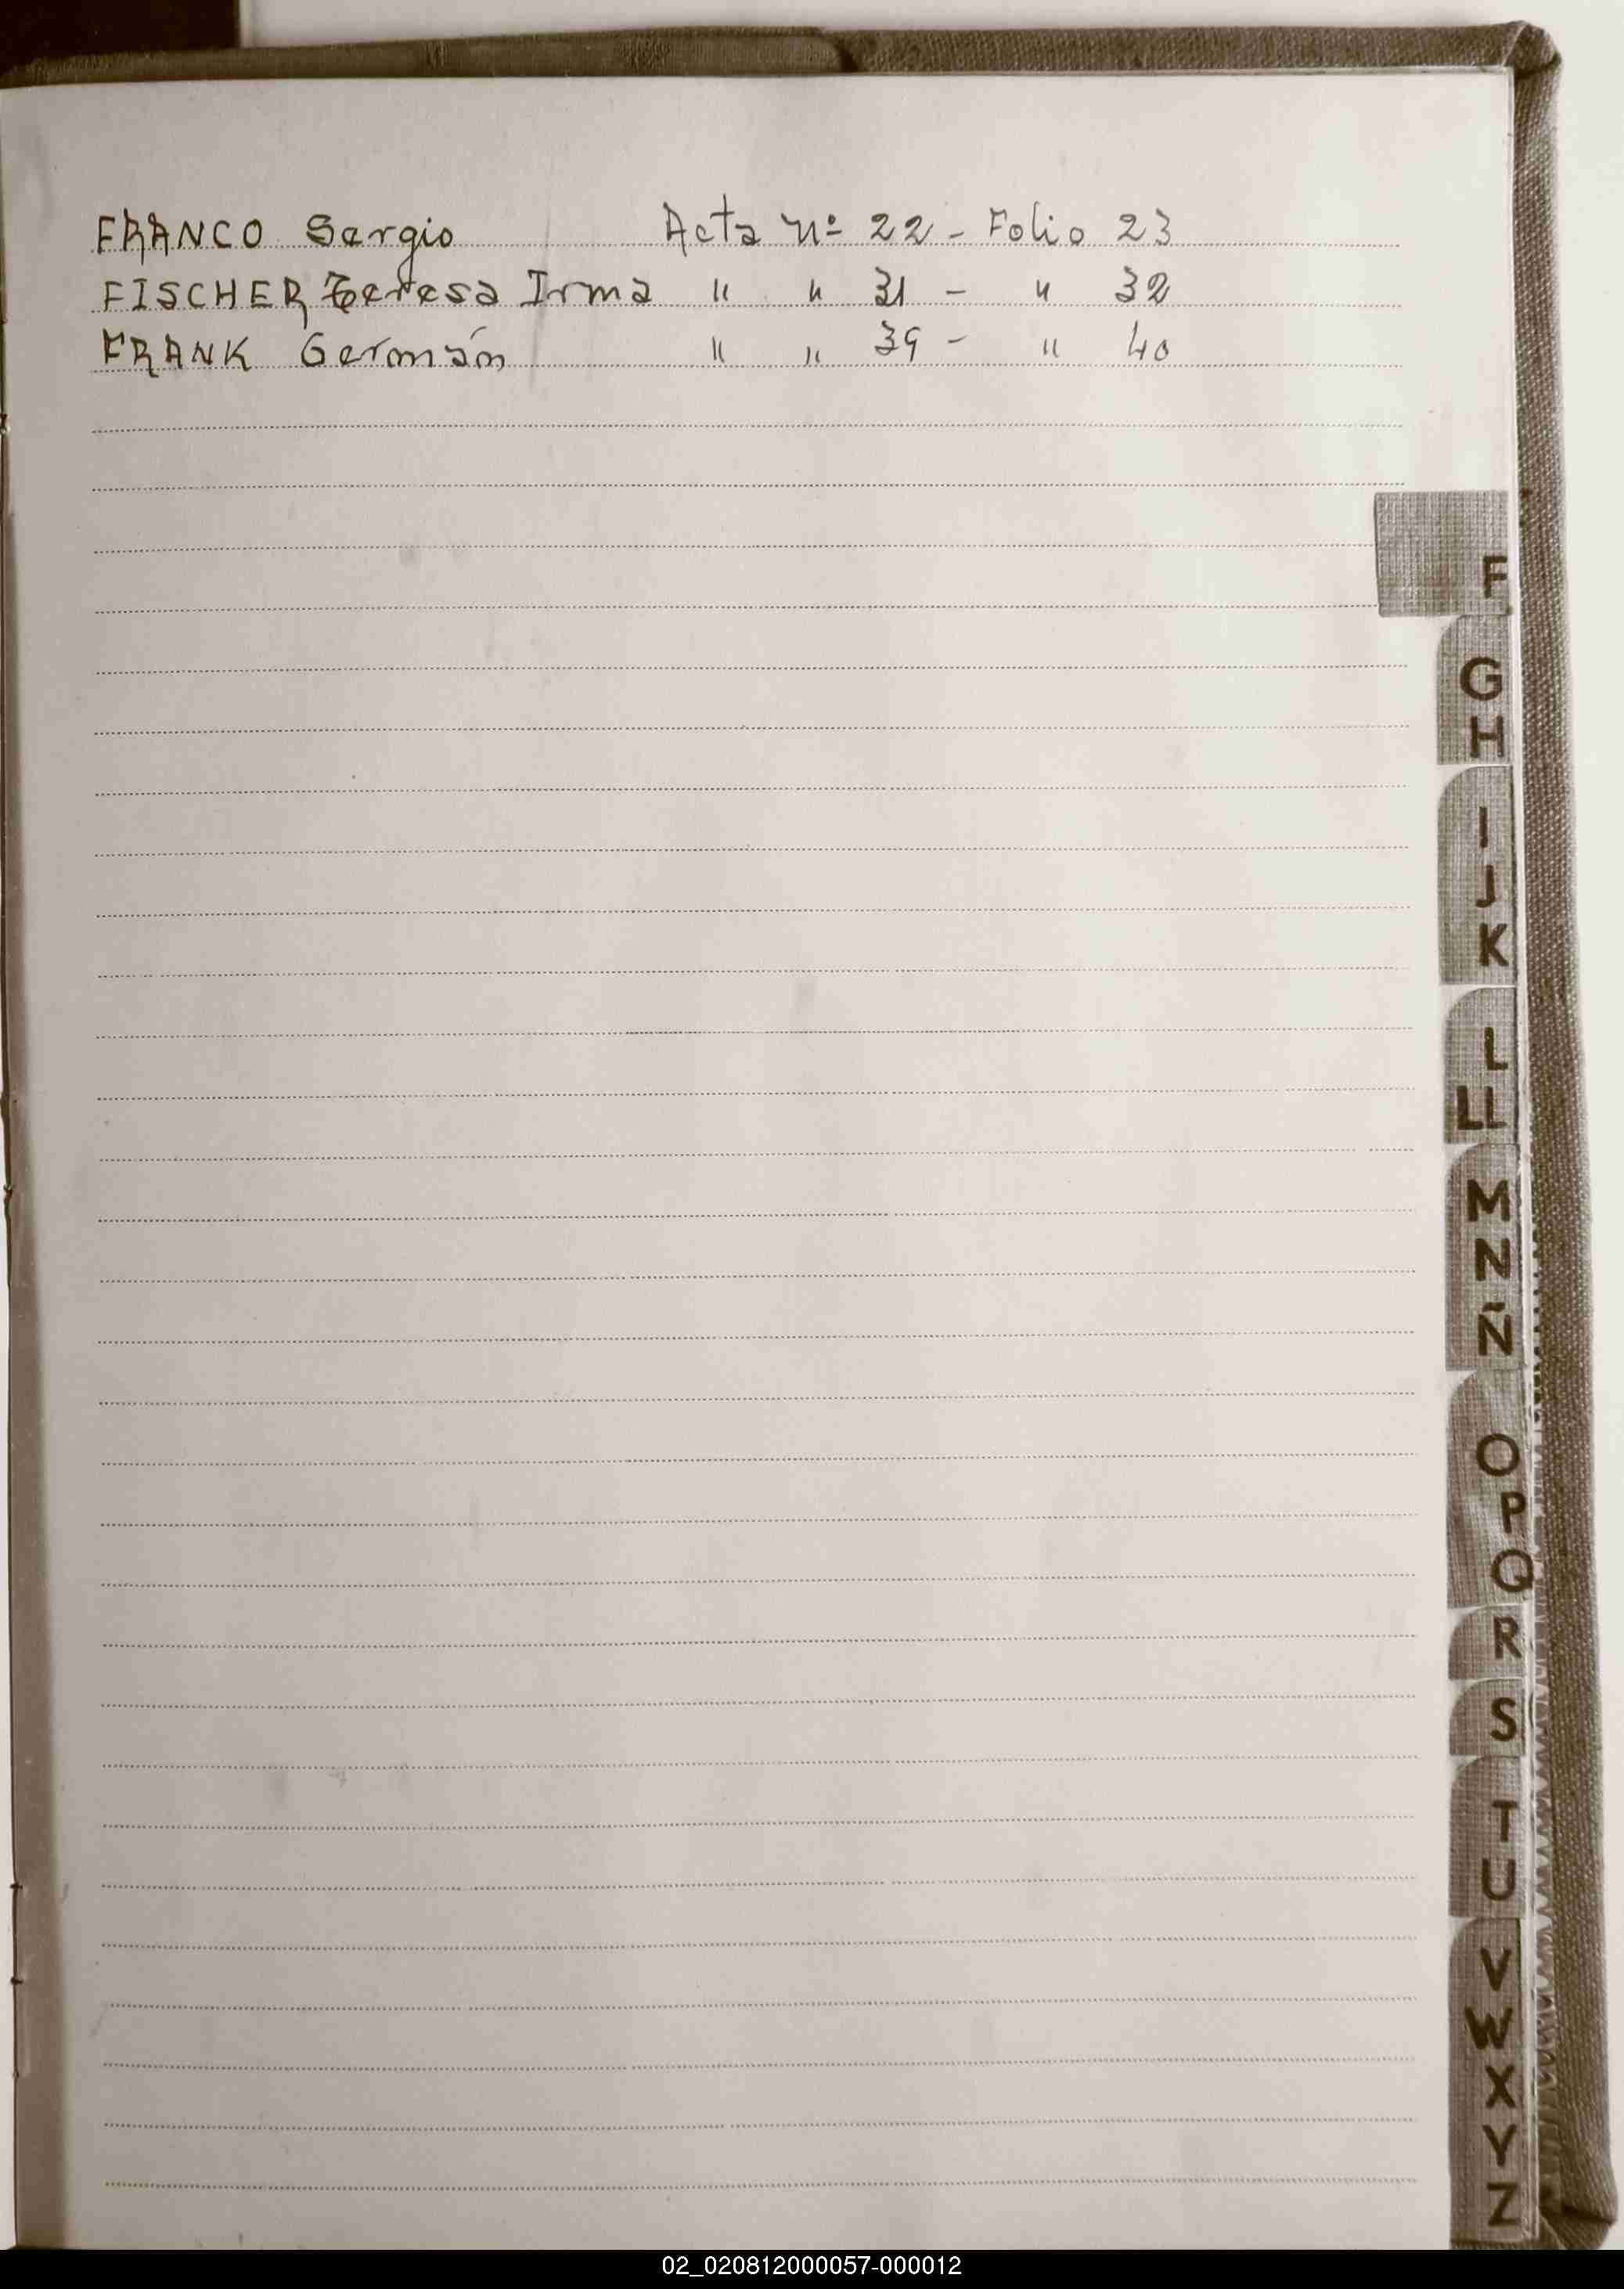 FRANCO Sergio Acta Nº 22 - Folio 23
FISCHER Teresa Irma " " 31 - " 32
FRANK Germán " " 39 - " 40
F
G
H
I
J
K
L
LL
M
N
Ñ
O
P
Q
R
S
T
U
V
W
X
Y
Z
02_020812000057-000012